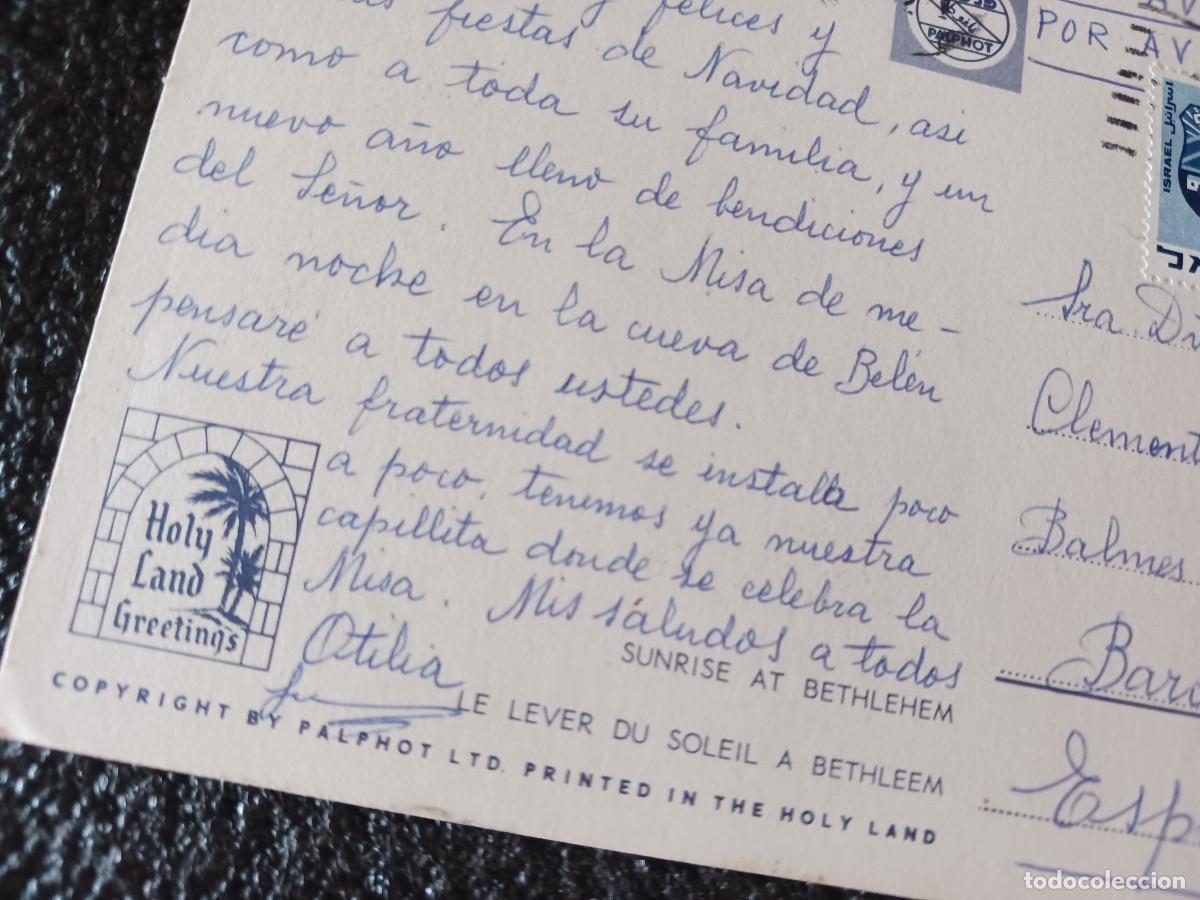 felices y
fiestas de Navidad, asi
como a toda su familia, y un
nuevo año lleno de bendiciones
del Señor. En la Misa de me-
dia noche en la cueva de Belén
pensaré a todos ustedes.
Nuestra fraternidad se installa poco
a poco, tenemos ya nuestra
capillita donde se celebra la
Misa. Mis saludos a todos
Otilia
Holy
Land
Greetings
SUNRISE AT BETHLEHEM
LE LEVER DU SOLEIL A BETHLEEM
COPYRIGHT BY PALPHOT LTD. PRINTED IN THE HOLY LAND
PALPHOT
POR AV
ISRAEL اسرائيل
Sra D
Clement
Balmes
Bar
Esp
todocoleccion